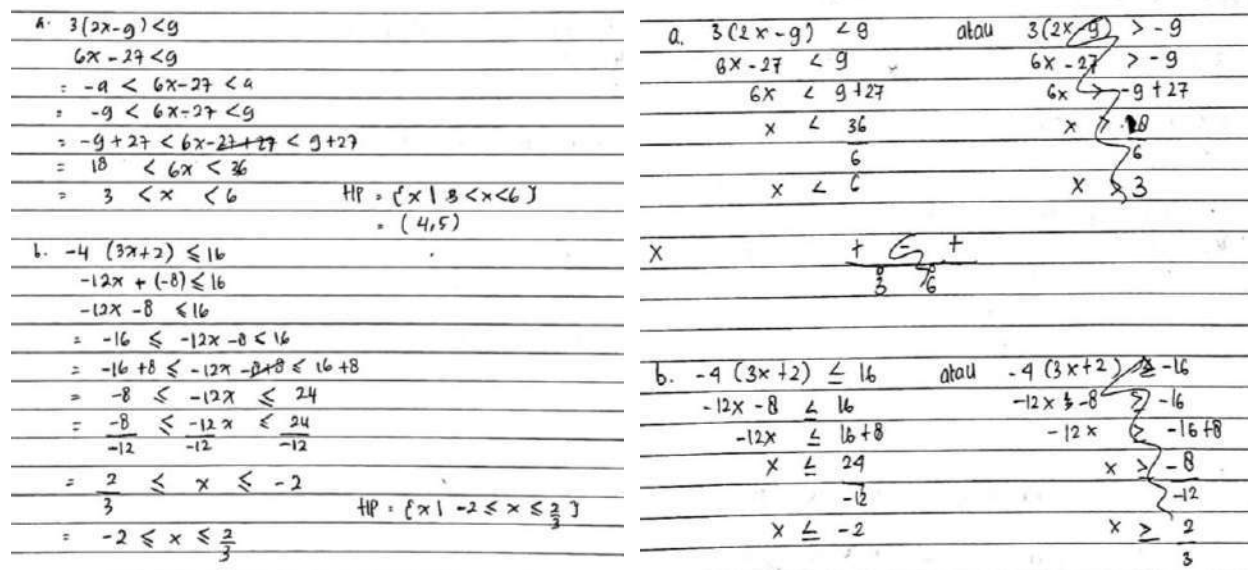 a. 3(2x-9)<9
6x - 27 <9
= -a < 6x-27 < a
= -9 < 6x-27 <9
= -9+27 < 6x-27+27 < 9+27
= 18 < 6x < 36
= 3 < x < 6 HP = {x | 3 <x<6}
= (4,5)
b. -4 (3x+2) ≤ 16
-12x + (-8) ≤ 16
-12x -8 ≤ 16
= -16 ≤ -12x -8 ≤ 16
= -16 +8 ≤ -12x -8+8 ≤ 16 +8
= -8 ≤ -12x ≤ 24
= -8/-12 ≤ -12x/-12 ≤ 24/-12
= 2/3 ≤ x ≤ -2
HP = {x | -2 ≤ x ≤ 2/3}
= -2 ≤ x ≤ 2/3
a. 3(2x-9) < 9 atau 3(2x-9) > -9
6x-27 < 9 6x-27 > -9
6x < 9+27 6x > -9+27
x < 36/6 x > 18/6
x < 6 x > 3
x + - +
3 6
b. -4 (3x+2) ≤ 16 atau -4 (3x+2) ≥ -16
-12x - 8 ≤ 16 -12x -8 ≥ -16
-12x ≤ 16+8 -12x ≥ -16+8
x ≤ 24/-12 x ≥ -8/-12
x ≤ -2 x ≥ 2/3